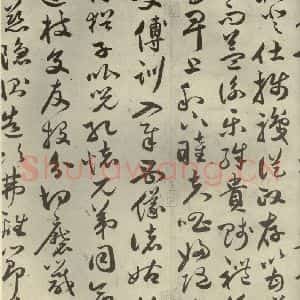 登仕攝職從政存以甘
而益詠樂殊貴賤禮
卑上和下睦夫唱婦隨
受傅訓入奉母儀諸姑
猶子比兒孔懷兄弟同氣
連枝交友投分切磨箴
慈隱惻造次弗離節
Shufawang.cn